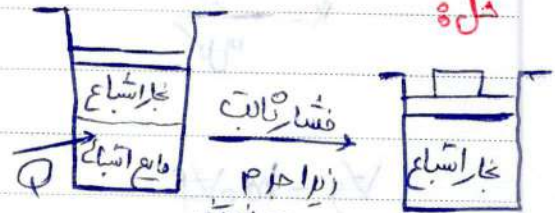 حل:
بخار اشباع
مایع اشباع
Q
فشار ثابت
زیرا جرم
بخار اشباع